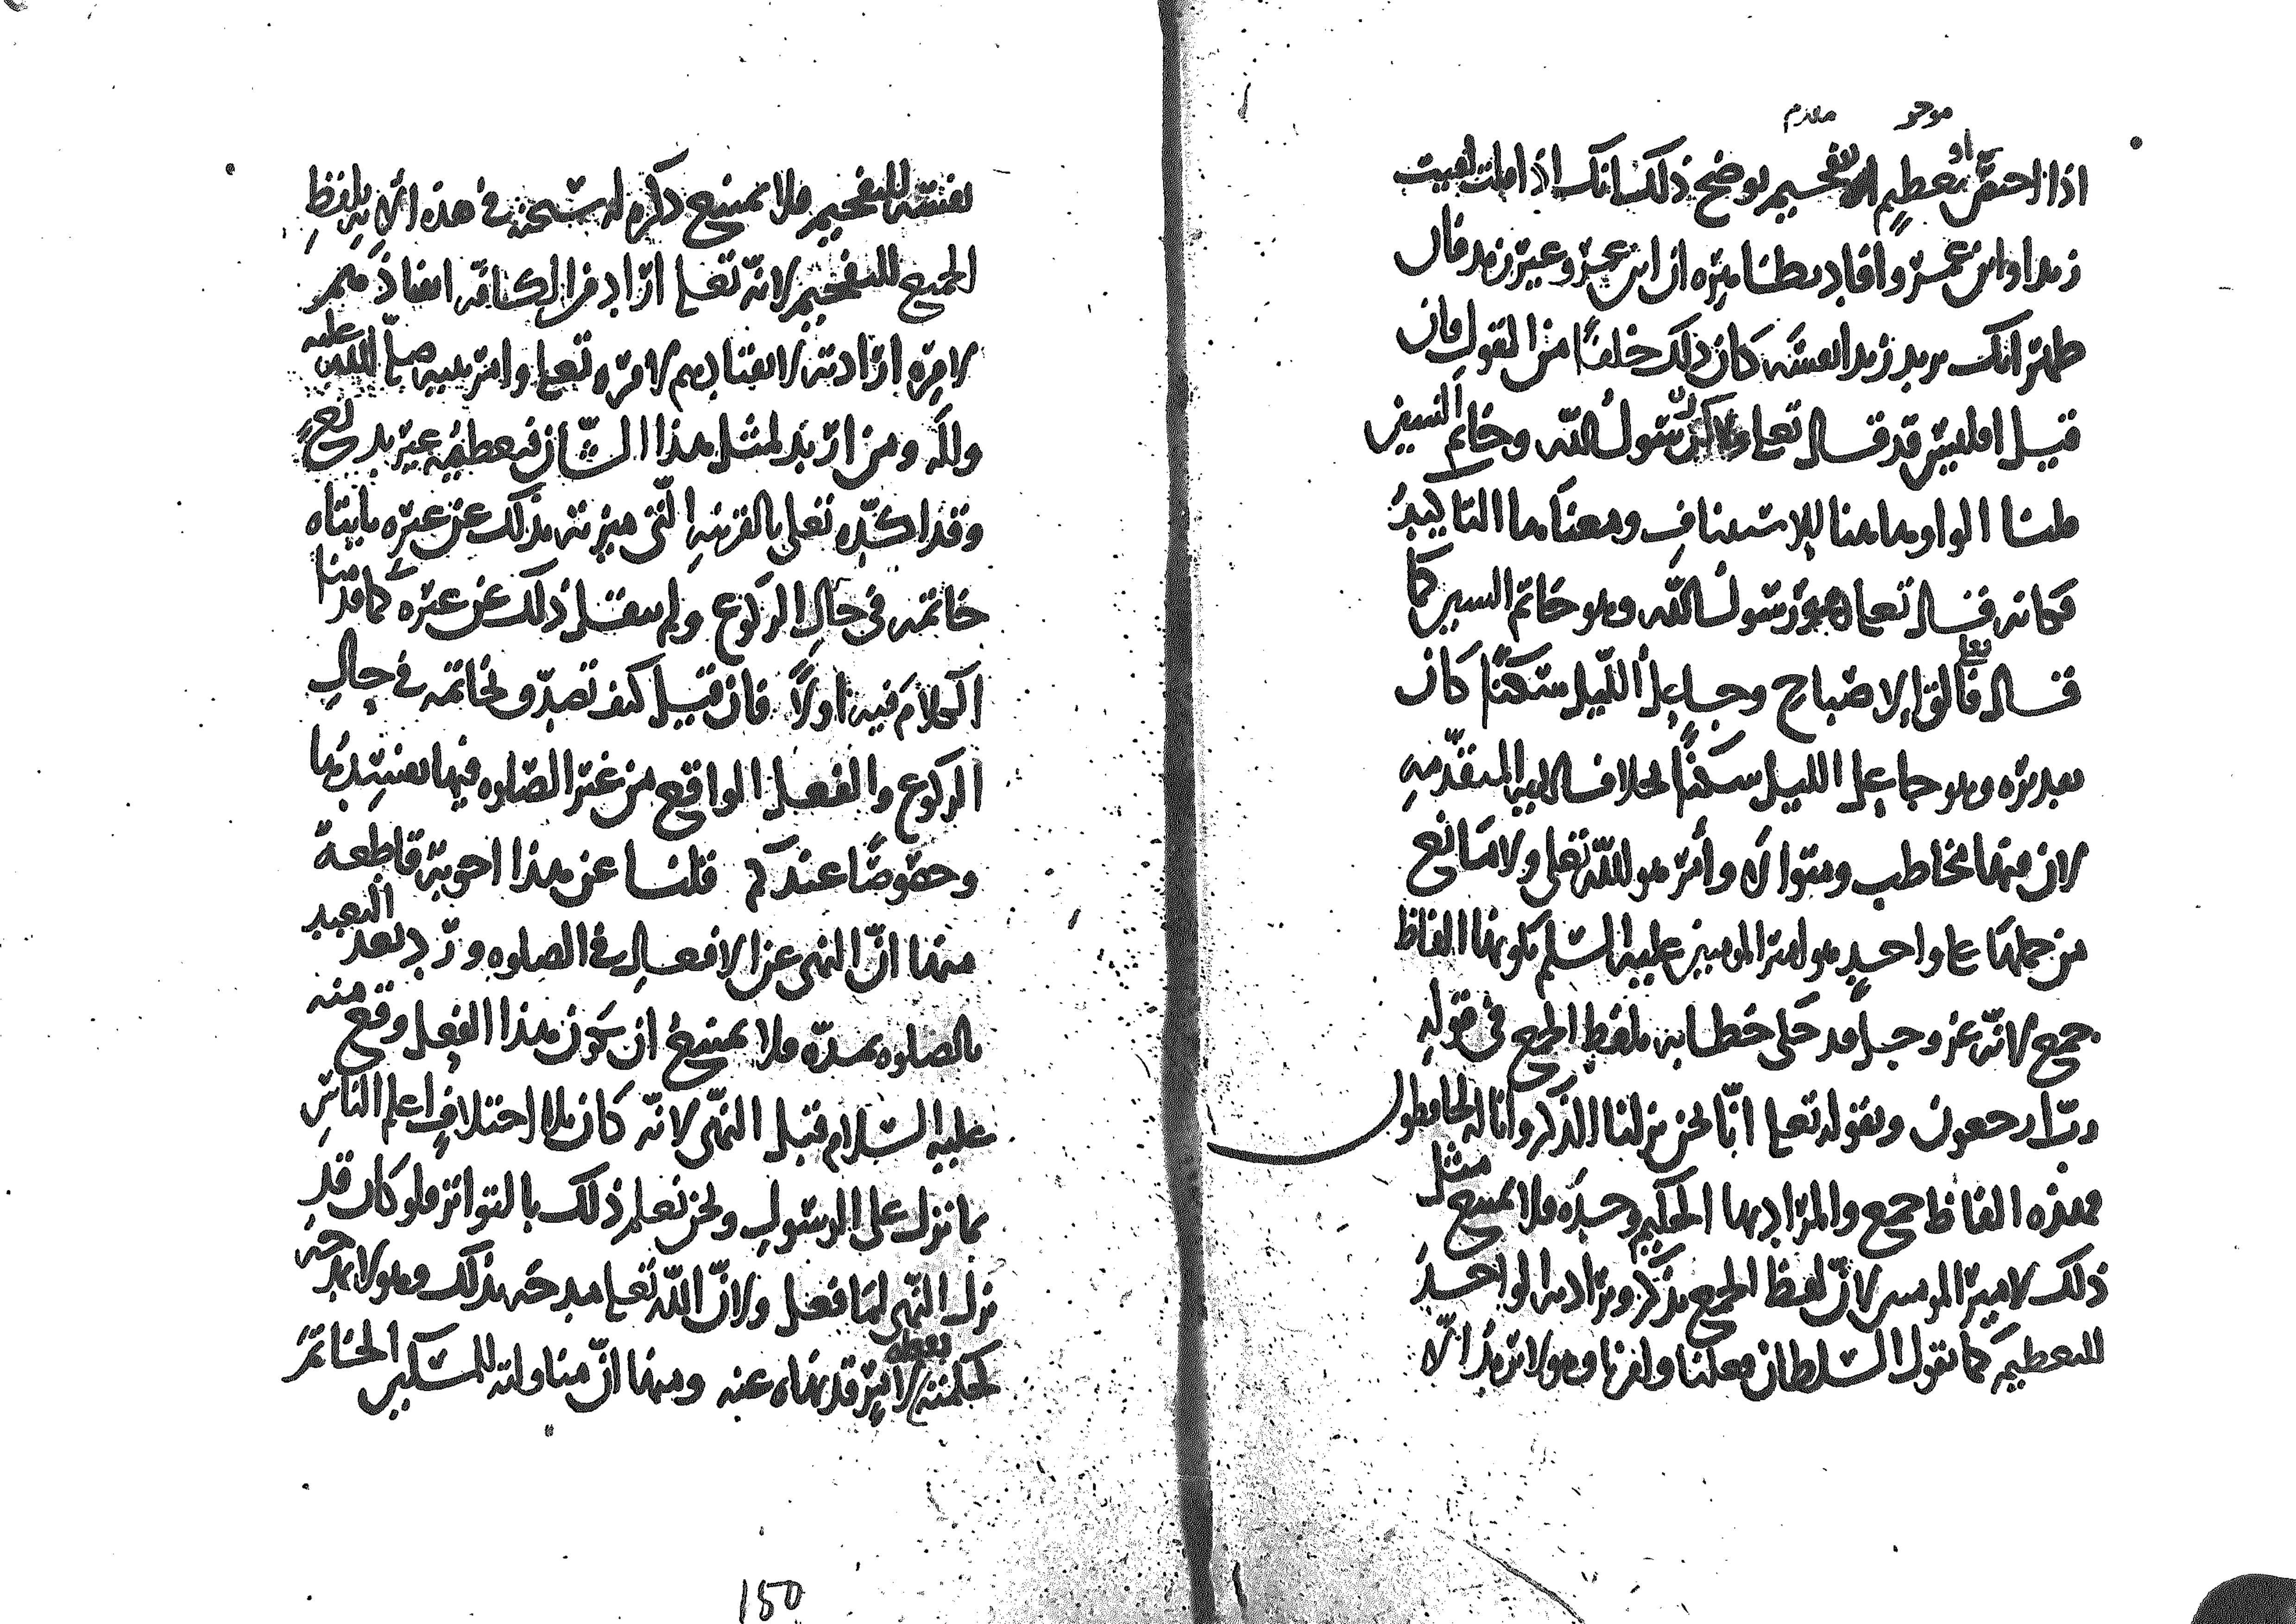 موخر مقدم
اذا اختص او تعظيم التفخيم يوضح ذلك انك اذا قلت لقيت
زيدا وابن عمرو وافاد بظاهره ان ابن عمرو غير زيد فان
ظهر انك تريد زيدا نفسه كان ذلك خلفا من القول فان
قيل اوليس قد قال تعالى ولكن رسول الله وخاتم النبيين
قلنا الواو هاهنا للاستيناف ومعناها التاكيد
فكانه قال تعالى هو رسول الله وهو خاتم النبيين كما
قال تعالى فالق الاصباح وجاعل الليل سكنا كان
تقديره وهو جاعل الليل سكنا بخلاف الاية المتقدمة
لان فيها مخاطب ومتولاه وأمر هو لله تعالى ولا مانع
من حملها على واحد هو امير المومنين عليه السلم بكونها الفاظ
جمع لانه عز وجل قد حكى خطابه بلفظ الجمع في قوله
رب ارجعون وبقوله تعالى انا نحن نزلنا الذكر وانا له لحافظون
فهذه الفاظ جمع والمراد بها الحكيم وحده فلا يمتنع مثل
ذلك لامير المومنين لان لفظ الجمع يذكر ويراد به الواحد
للتعظيم كما يقول السلطان فعلنا وامرنا وهو لا يريد الا
نفسه للتفخيم فلا يمتنع ذكره له سبحنه في هذه الاية بلفظ
الجمع للتفخيم لانه تعالى اراد من الكافة انفاذهم
لامره ارادته لانقيادهم لامره تعالى وامر نبيه صلى الله عليه
واله ومن اريد لمثل هذا الشان فتعظيمه غير بدع
وقد اكده تعالى بالقرينة التي ميزته بذلك عن غيره بايتاه
خاتمه في حال الركوع ولم ينقل ذلك عن غيره كما قدمنا
الكلام فيه اولا فان قيل كيف تصدق بخاتمه في حال
الركوع والفعل الواقع من غير الصلوه فيها يفسدها
وخصوصا عندكم قلنا عن هذا اجوبة قاطعة
منها ان النهي عن الافعال في الصلوه ورد بعد التعبد
بالصلوه بمدة فلا يمتنع ان يكون هذا الفعل وقع منه
عليه السلام قبل النهي لانه كان بلا اختلاف اعلم الناس
بما نزل على الرسول ونحن نعلم ذلك بالتواتر فلو كان قد
نزل النهي لما فعل ولان الله تعالى مدحه بذلك وهو لا يمدحه
لحكمته بفعله لامر قد نهاه عنه ومنها ان مناولته للمسكين الخاتم
150